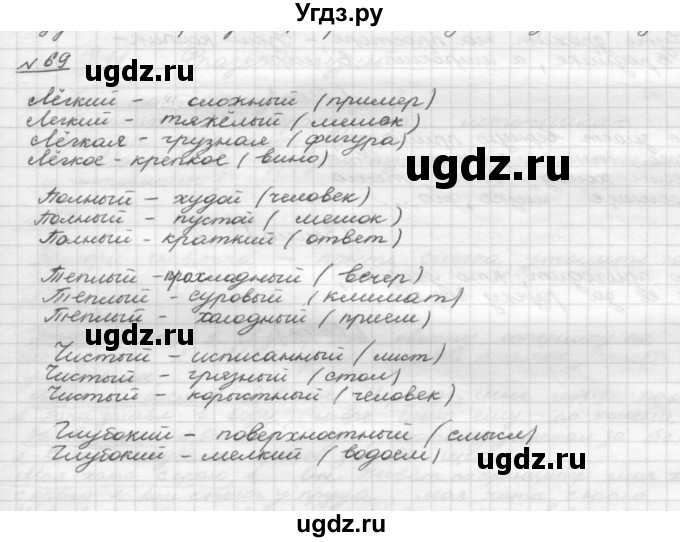 Угдз.ру
№ 69
ugdz.ru
Лёгкий - сложный (пример)
Легкий - тяжёлый (мешок)
Лёгкая - грузная (фигура)
Лёгкое - крепкое (вино)
ugdz.ru
Полный - худой (человек)
Полный - пустой (мешок)
Полный - краткий (ответ)
Теплый - прохладный (вечер)
Теплый - суровый (климат)
Теплый - халодный (прием)
ugdz.ru
Чистый - исписанный (лист)
Чистый - грязный (стол)
Чистый - корыстный (человек)
Глубокий - поверхностный (смысл)
Глубокий - мелкий (водоем)
ugdz.ru
ugdz.ru